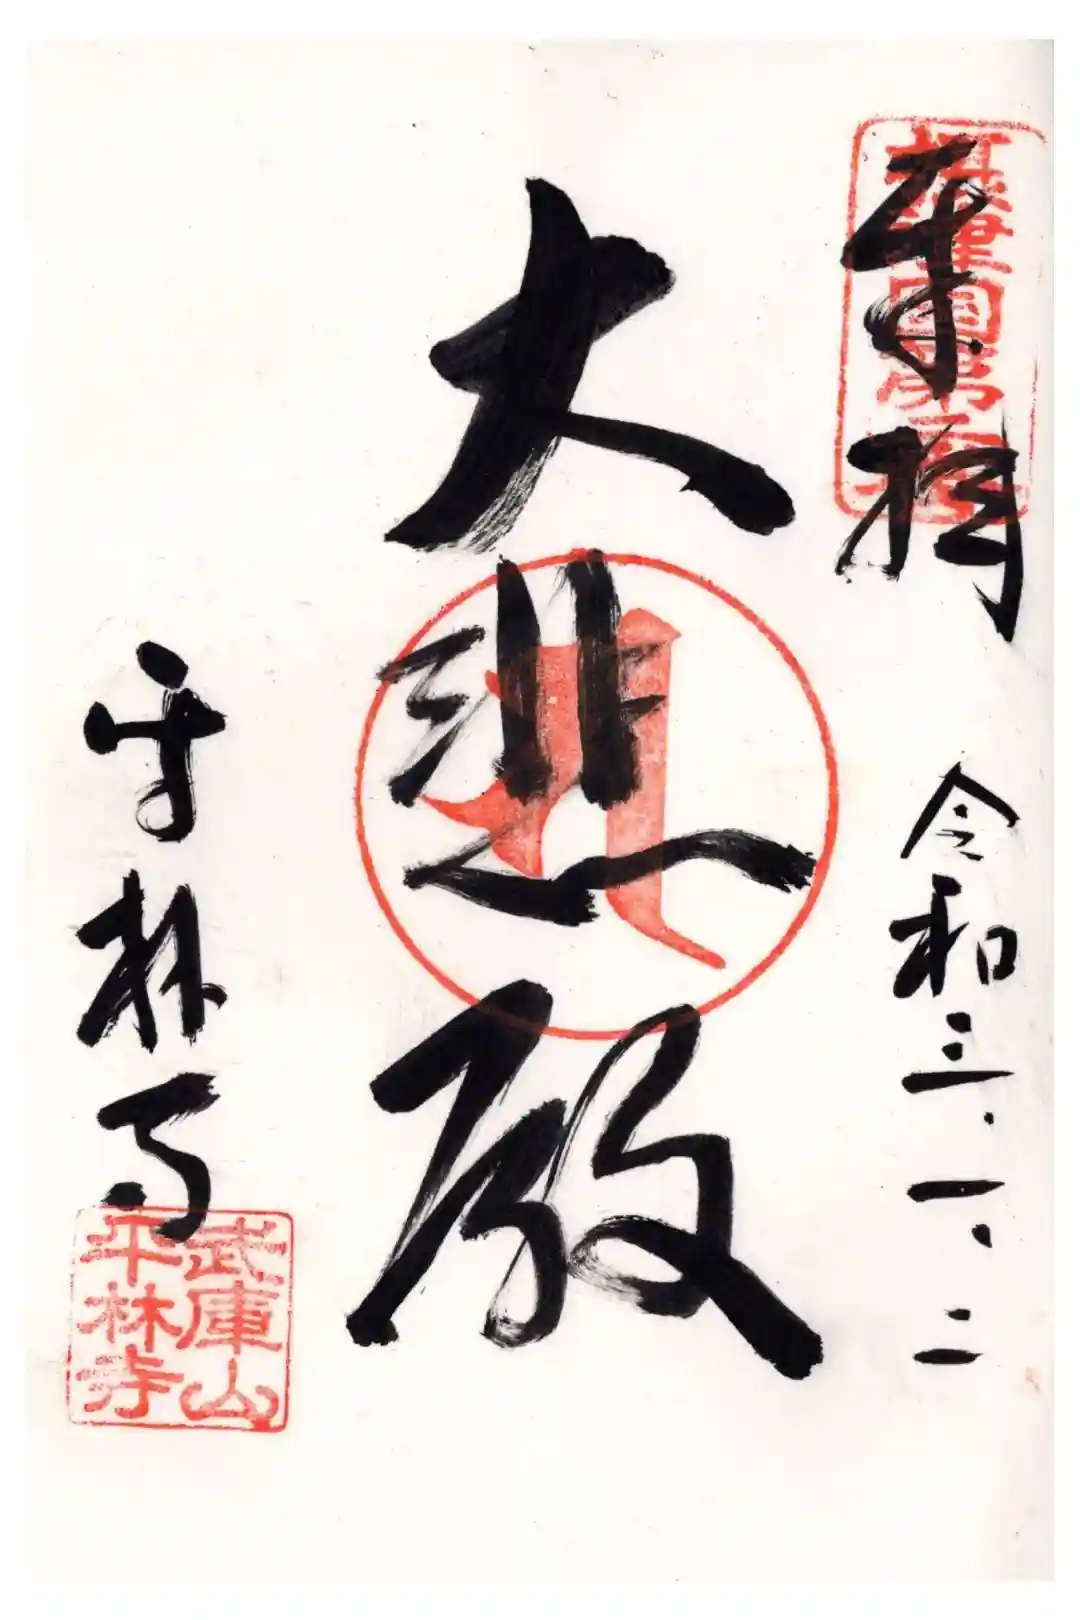 奉拝
令和三、一、二
大悲殿
平林寺
武庫山
平林寺